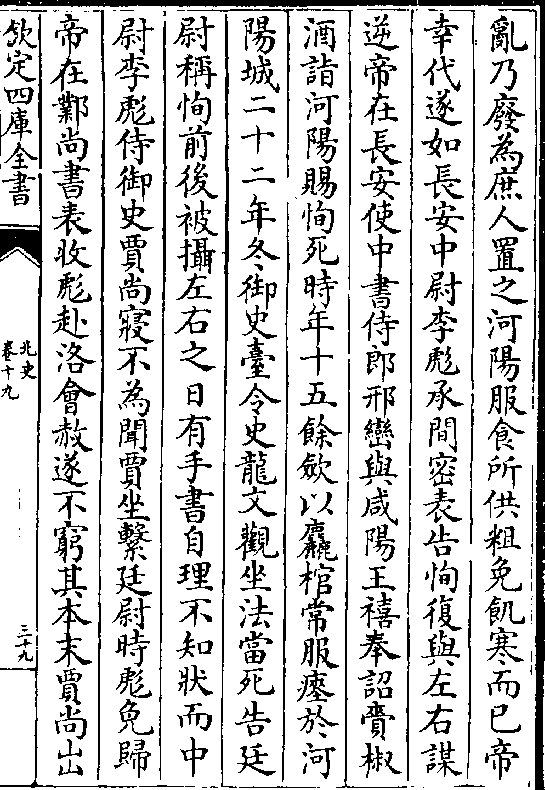 亂乃廢為庶人置之河陽服食所供粗免飢寒而已帝
幸代遂如長安中尉李彪承間密表告恂復與左右謀
逆帝在長安使中書侍郎邢巒與咸陽王禧奉詔賫椒
酒詣河陽賜恂死時年十五餘歛以麤棺常服瘞於河
陽城二十二年冬御史臺令史龍文觀坐法當死告廷
尉稱恂前後被攝左右之日有手書自理不知狀而中
尉李彪侍御史賈尚寢不為聞賈坐繫廷尉時彪免歸
帝在鄴尚書表收彪赴洛會赦遂不窮其本末賈尚出
欽定四庫全書
北史
卷十九
三十九